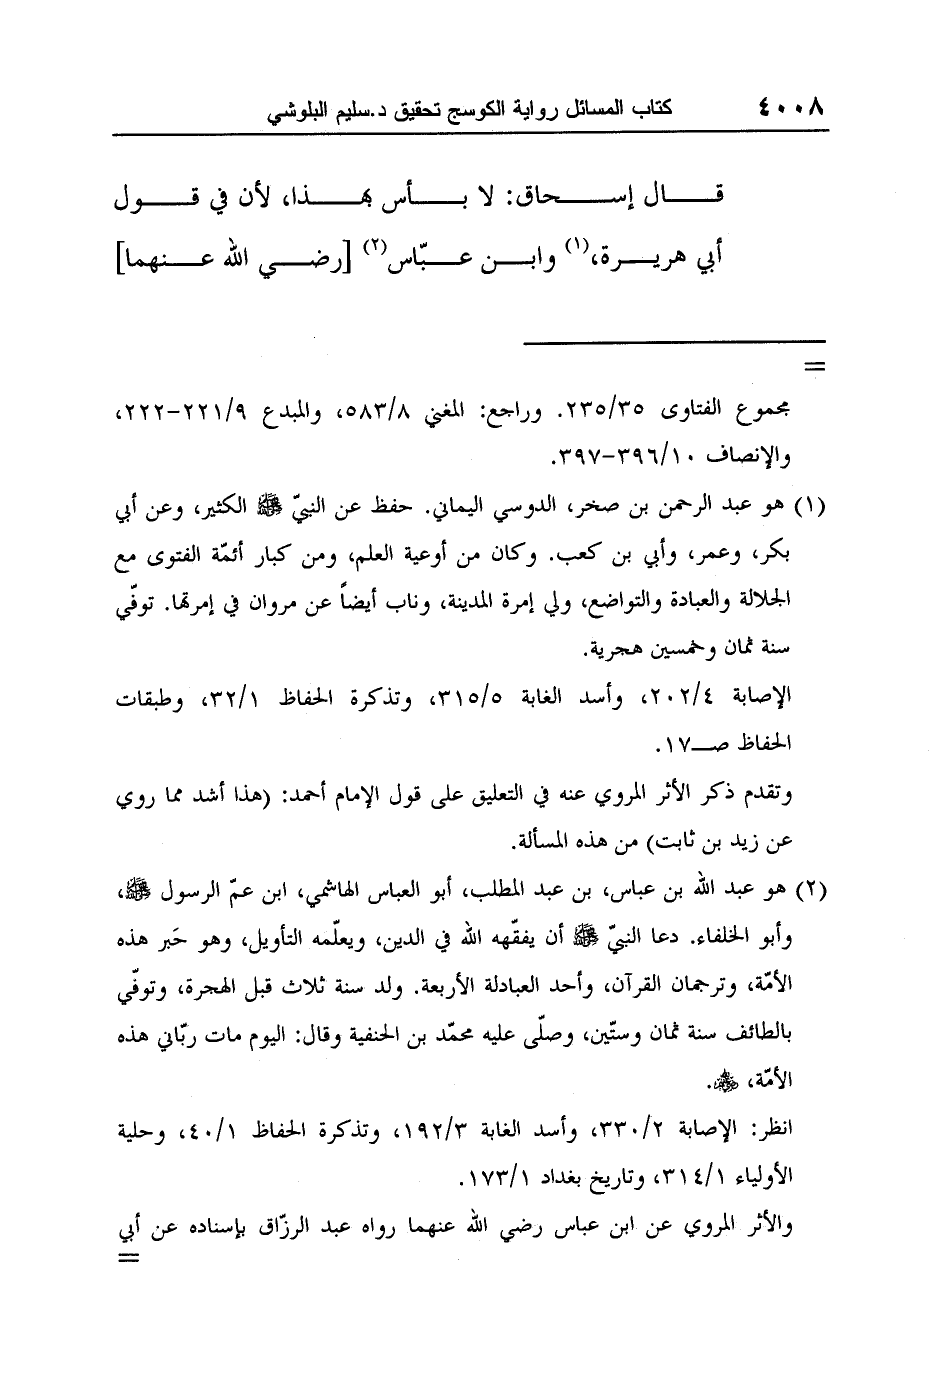 ٤٠٠٨ كتاب المسائل رواية الكوسج تحقيق د.سليم البلوشي
قال إسحاق: لا بأس بهذا، لأن في قول
أبي هريرة،(١) وابن عبّاس(٢) [رضي الله عنهما]
=
مجموع الفتاوى ٢٣٥/٣٥. وراجع: المغني ٥٨٣/٨، والمبدع ٢٢١/٩-٢٢٢،
والإنصاف ٣٩٦/١٠-٣٩٧.
(١) هو عبد الرحمن بن صخر، الدوسي اليماني. حفظ عن النبيّ ﷺ الكثير، وعن أبي
بكر، وعمر، وأبي بن كعب. وكان من أوعية العلم، ومن كبار أئمّة الفتوى مع
الجلالة والعبادة والتواضع، ولي إمرة المدينة، وناب أيضاً عن مروان في إمرتها. توفّي
سنة ثمان وخمسين هجرية.
الإصابة ٢٠٢/٤، وأسد الغابة ٣١٥/٥، وتذكرة الحفاظ ٣٢/١، وطبقات
الحفاظ صـ١٧.
وتقدم ذكر الأثر المروي عنه في التعليق على قول الإمام أحمد: (هذا أشد مما روي
عن زيد بن ثابت) من هذه المسألة.
(٢) هو عبد الله بن عباس، بن عبد المطلب، أبو العباس الهاشمي، ابن عمّ الرسول ﷺ،
وأبو الخلفاء. دعا النبيّ ﷺ أن يفقّهه الله في الدين، ويعلّمه التأويل، وهو حَبر هذه
الأمّة، وترجمان القرآن، وأحد العبادلة الأربعة. ولد سنة ثلاث قبل الهجرة، وتوفّي
بالطائف سنة ثمان وستّين، وصلّى عليه محمّد بن الحنفية وقال: اليوم مات ربّاني هذه
الأمّة، ﵁.
انظر: الإصابة ٣٣٠/٢، وأسد الغابة ١٩٢/٣، وتذكرة الحفاظ ٤٠/١، وحلية
الأولياء ٣١٤/١، وتاريخ بغداد ١٧٣/١.
والأثر المروي عن ابن عباس رضي الله عنهما رواه عبد الرزّاق بإسناده عن أبي
=